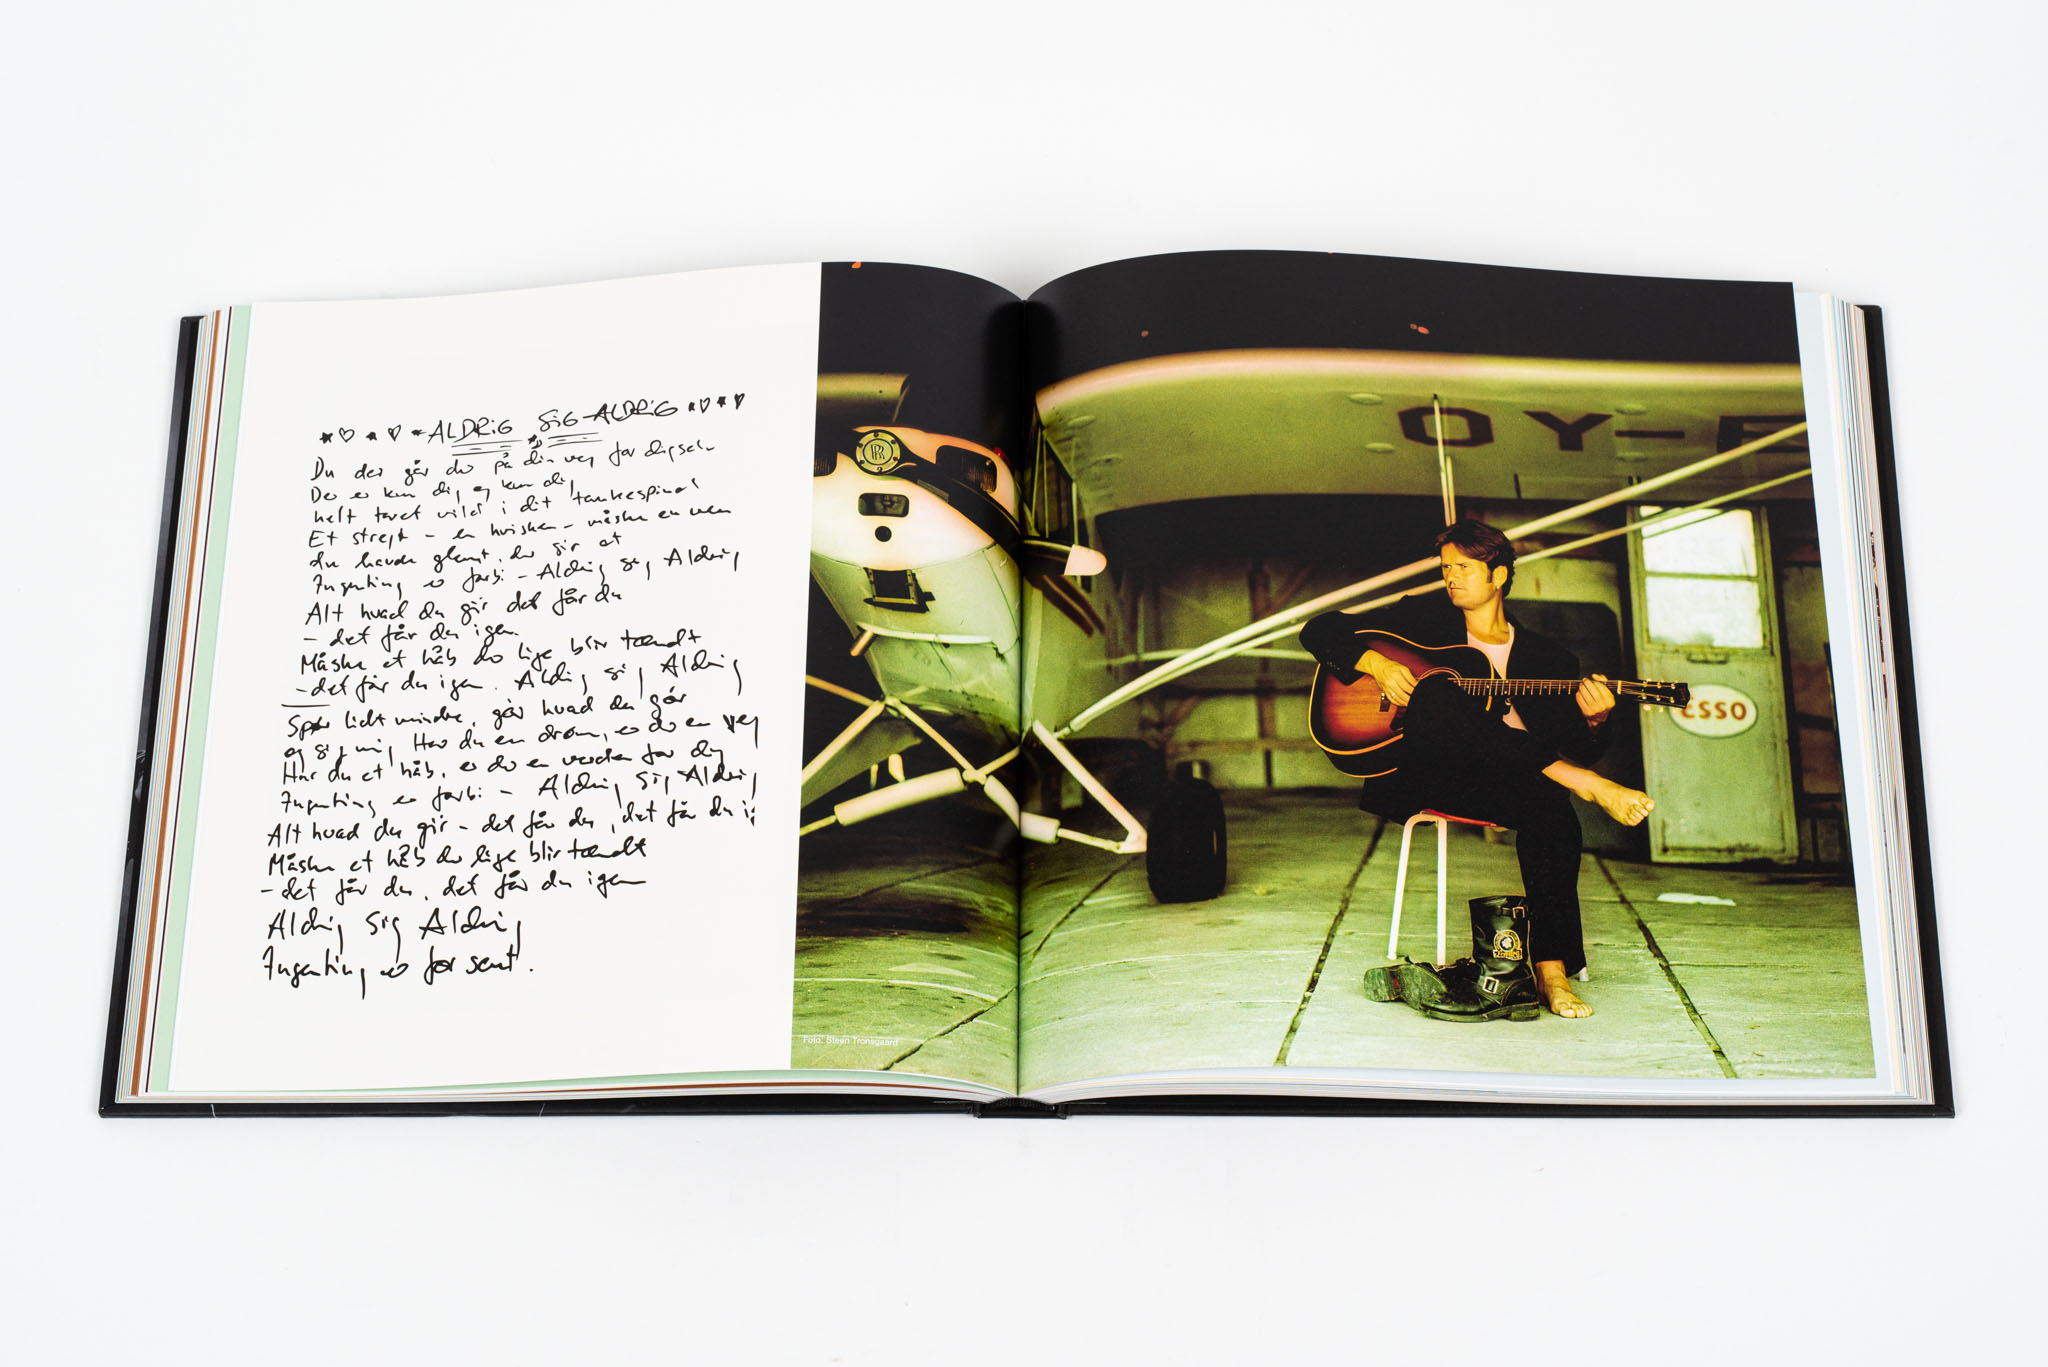 ALDRIG SIG ALDRIG
Du der går der på din vej for dig selv
Der er kun dig og kun dig
helt faret vild i dit tankespind
Et strejf - en hvisken - måske en ven
du havde glemt, der sir at
Ingenting er forbi - Aldrig sig Aldrig
Alt hvad du gir det får du
- det får du igen.
Måske et håb der lige blir tændt
- det får du igen. Aldrig sig Aldrig
Spør lidt mindre, gør hvad du gør
og sig mig Har du en drøm, er der en vej
Har du et håb, er der en verden for dig
Ingenting er forbi - Aldrig sig Aldrig
Alt hvad du gir - det får du, det får du
Måske et håb der lige blir tændt
- det får du, det får du igen
Aldrig sig Aldrig
Ingenting er for sent.
Foto: Steen Tronsgaard
RR
OY-
ESSO